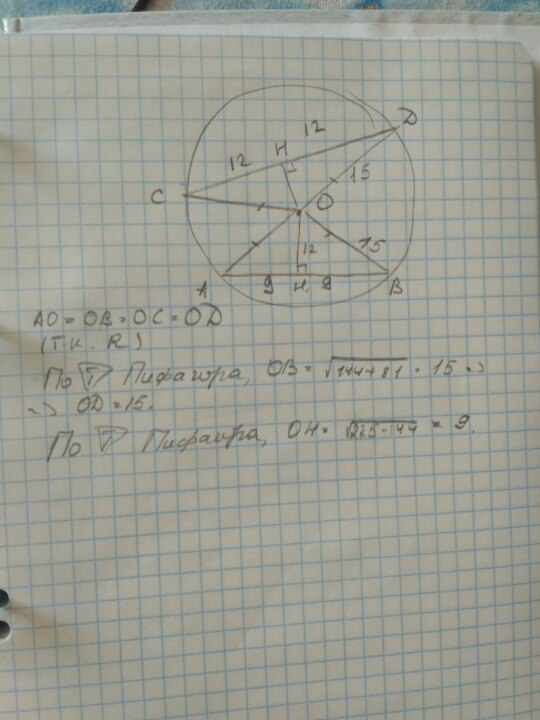 D
12
H
12
15
C
O
12
15
A
9
H,
8
B
AO = OB = OC = OD
(т.к. R)
По T Пифагора, OB = √144+81 = 15 =>
=> OD = 15.
По T Пифагора, OH = √225-144 = 9.